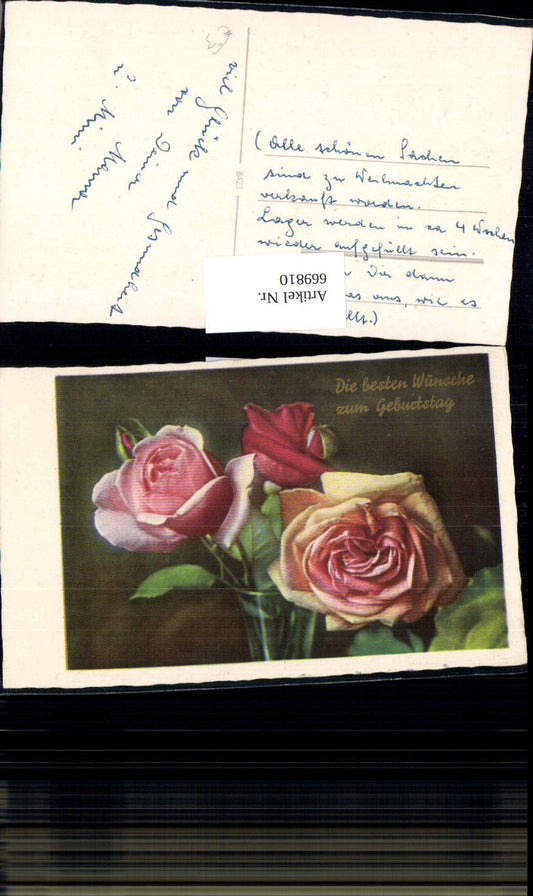 viel Glück und Gesundheit
von Deiner
Mama
u. Mimi
8423
(Alle schönen Sachen
sind zu Weihnachten
verkauft worden.
Lager werden in ca 4 Wochen
wieder aufgefüllt sein.
Dir dann
was aus, wie es
Artikel Nr.
669810
Die besten Wünsche
zum Geburtstag